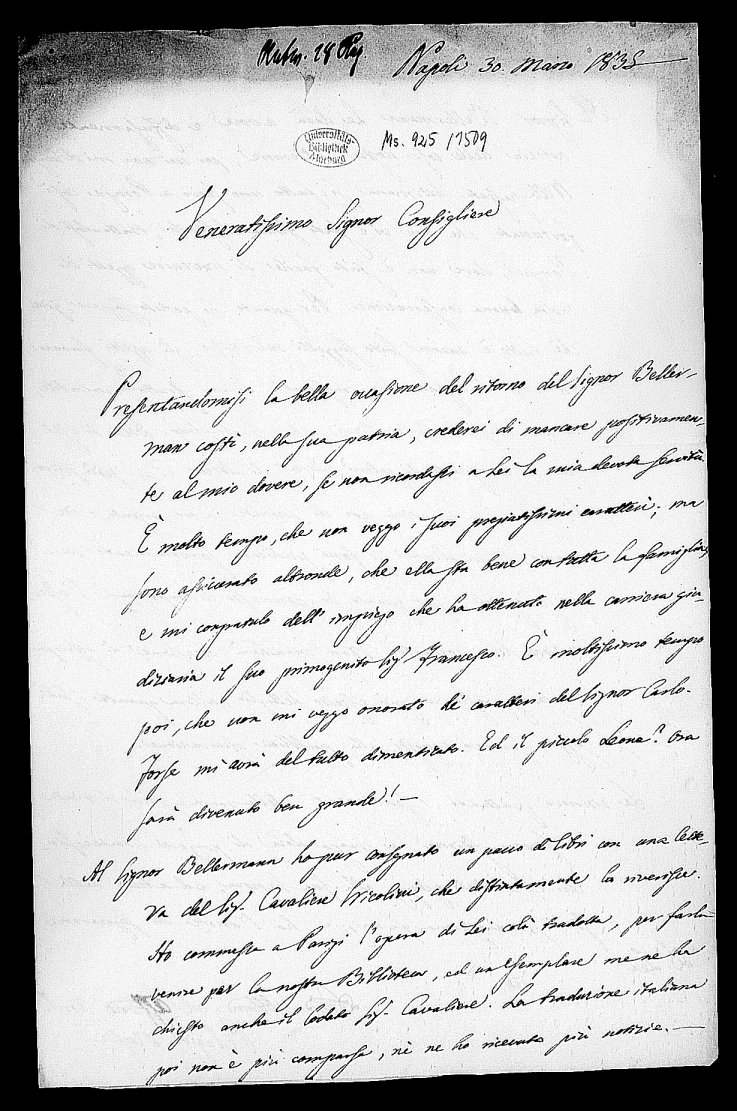 Napoli 30. Marzo 1835
Universitäts
Bibliothek
Marburg
Ms. 925/1509
Veneratissimo Signor Consigliere
Presentandomisi la bella occasione del ritorno del Signor Beller-
man costì, nella sua patria, crederei di mancare positivamen-
te al mio dovere, se non ricordassi a Lei la mia devota servitù.
È molto tempo, che non veggo i suoi pregiatissimi caratteri; ma
sono assicurato altronde, che ella sta bene con tutta la famiglia,
e mi congratulo dell' impiego che ha ottenuto nella carriera giu-
diziaria il suo primogenito Sigr Francesco. È moltissimo tempo
poi, che non mi veggo onorato de' caratteri del Signor Carlo.
Forse mi avrà del tutto dimenticato. Ed il piccolo Leone? Ora
sarà divenuto ben grande! —
Al Signor Bellermann ho pur consegnato un pacco di libri con una lette-
ra del Sigr Cavaliere Nicolini, che distintamente la riverisce.
Ho commessa a Parigi l'opera di Lei colà tradotta, per farla
venire per la nostra Biblioteca, ed un esemplare me ne ha
chiesto anche il lodato Sigr Cavaliere. La traduzione italiana
poi non è più comparsa, nè ne ho ricevuto più notizie. —